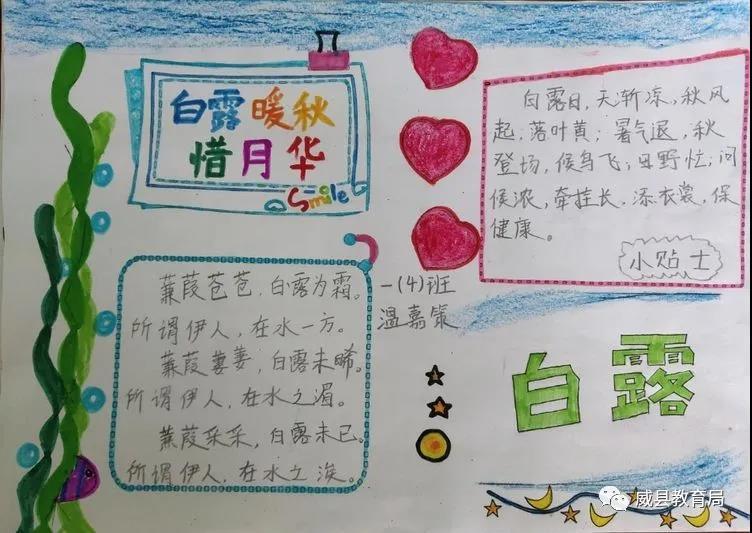 白露暖秋
惜月华
Smile
蒹葭苍苍，白露为霜。
所谓伊人，在水一方。
蒹葭萋萋，白露未晞。
所谓伊人，在水之湄。
蒹葭采采，白露未已。
所谓伊人，在水之涘。
一(4)班
温嘉策
白露日，天渐凉，秋风
起；落叶黄；暑气退，秋
登场，候鸟飞；田野忙；问
候浓，牵挂长，添衣裳，保
健康。
小贴士
白露
威县教育局